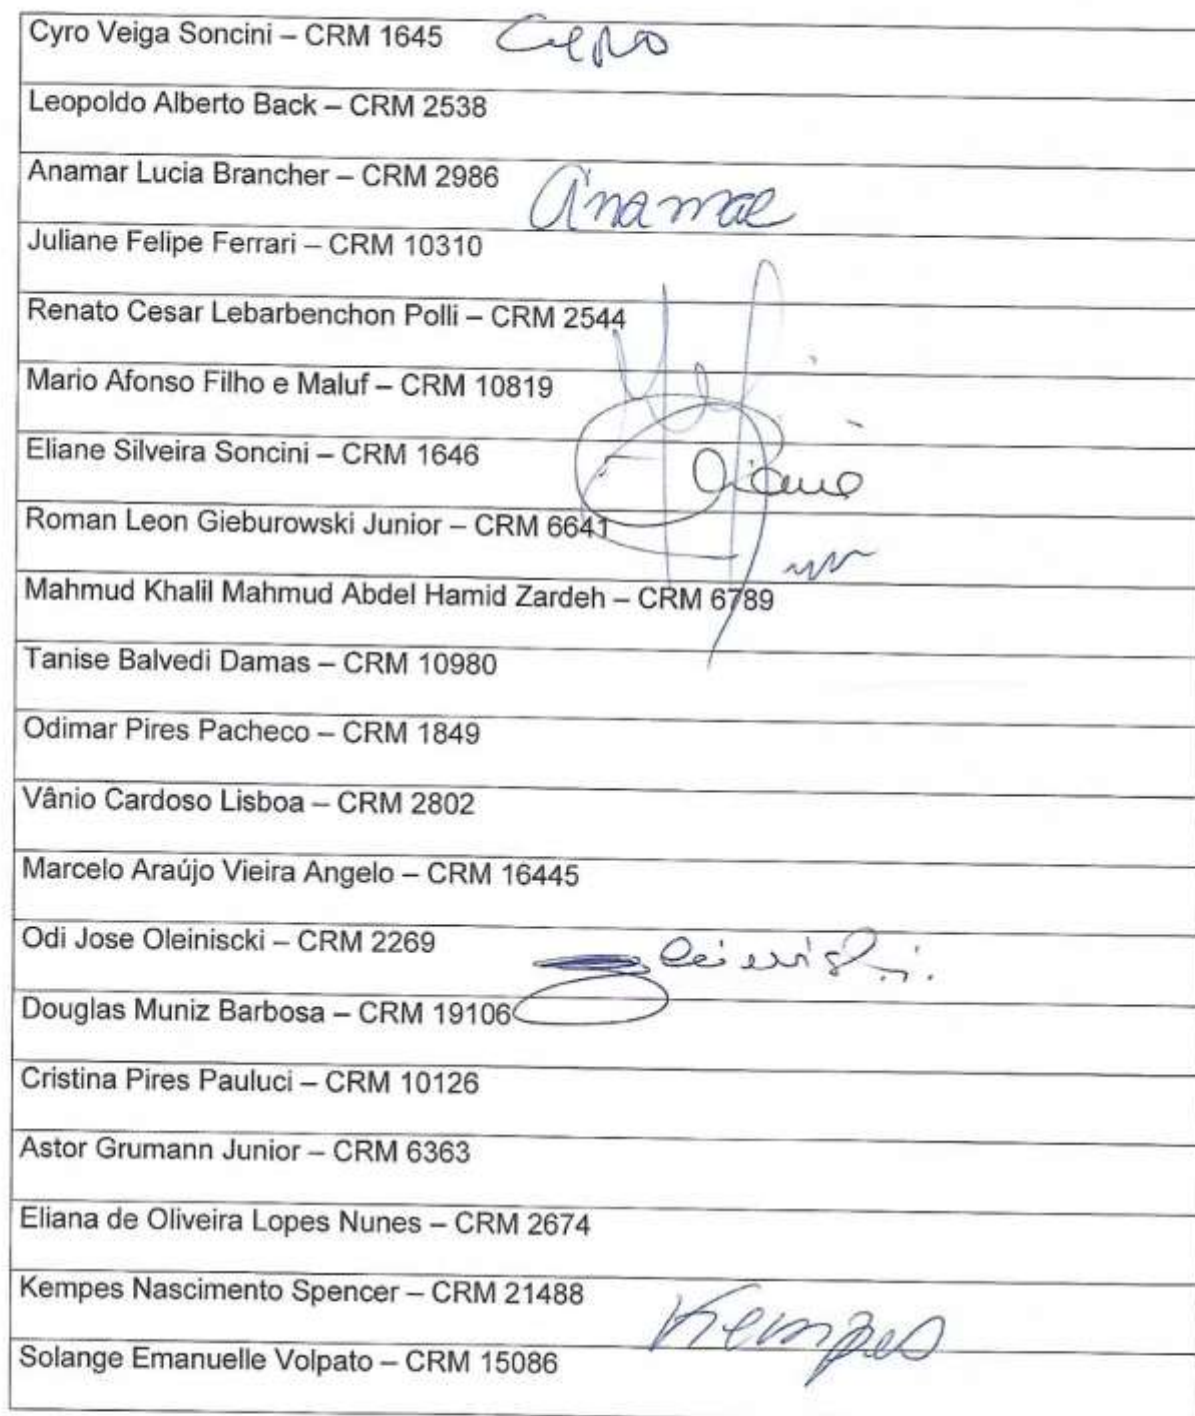 Cyro Veiga Soncini – CRM 1645 Cyro
Leopoldo Alberto Back – CRM 2538
Anamar Lucia Brancher – CRM 2986 Anamar
Juliane Felipe Ferrari – CRM 10310
Renato Cesar Lebarbenchon Polli – CRM 2544
Mario Afonso Filho e Maluf – CRM 10819
Eliane Silveira Soncini – CRM 1646 Eliane
Roman Leon Gieburowski Junior – CRM 6641
Mahmud Khalil Mahmud Abdel Hamid Zardeh – CRM 6789
Tanise Balvedi Damas – CRM 10980
Odimar Pires Pacheco – CRM 1849
Vânio Cardoso Lisboa – CRM 2802
Marcelo Araújo Vieira Angelo – CRM 16445
Odi Jose Oleiniscki – CRM 2269
Douglas Muniz Barbosa – CRM 19106
Cristina Pires Pauluci – CRM 10126
Astor Grumann Junior – CRM 6363
Eliana de Oliveira Lopes Nunes – CRM 2674
Kempes Nascimento Spencer – CRM 21488 Kempes
Solange Emanuelle Volpato – CRM 15086